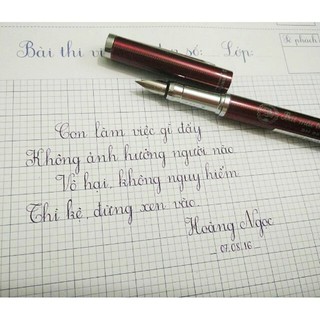 Bài thi số: Lớp:
Con làm việc gì đấy
Không ảnh hưởng người nào
Vô hại, không nguy hiểm
Thì kệ, đừng xen vào.
Hoàng Ngọc
- 07.08.16 -